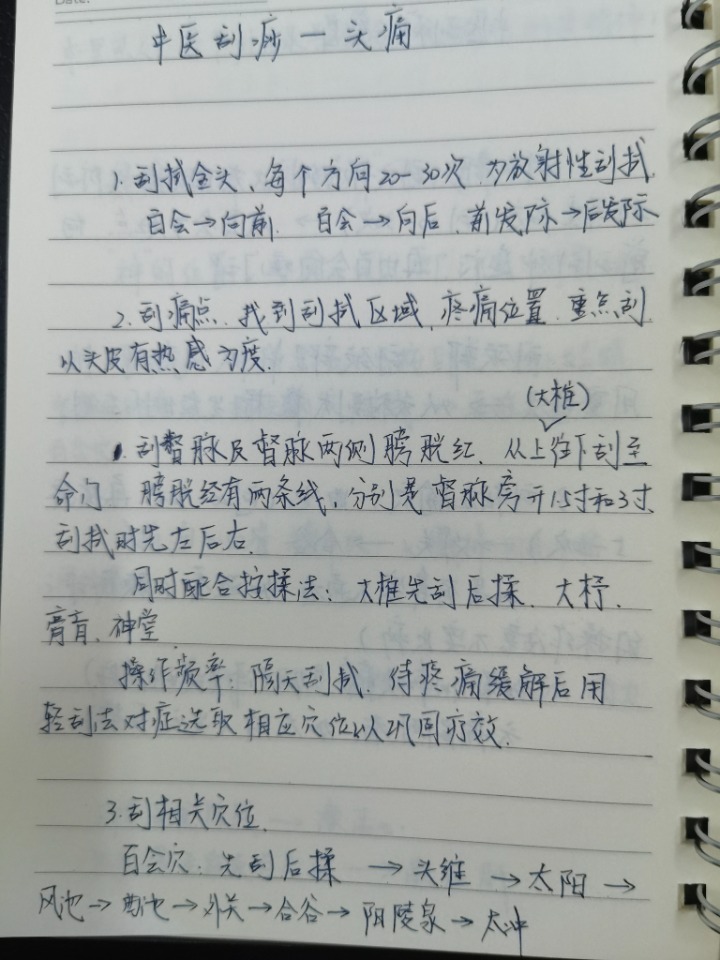 Date:
中医刮痧一头痛
1.刮拭全头、每个方向20-30次.为放射性刮拭.
百会→向前. 百会→向后.前发际→后发际
2.刮痛点.找到刮拭区域.疼痛位置.重点刮.
以头皮有热感为度.
(大椎)
1.刮督脉及督脉两侧膀胱红.从上往下刮至
命门 膀胱经有两条线,分别是督脉旁开1.5寸和3寸.
刮拭时先左后右.
同时配合按揉法:大椎先刮后揉.大杼.
膏肓.神堂.
操作频率:隔天刮拭.待疼痛缓解后用
轻刮法对症选取相应穴位以巩固疗效.
3.刮相关穴位.
百会穴:先刮后揉 →头维→太阳→
风池→曲池→外关→合谷→阳陵泉→太冲